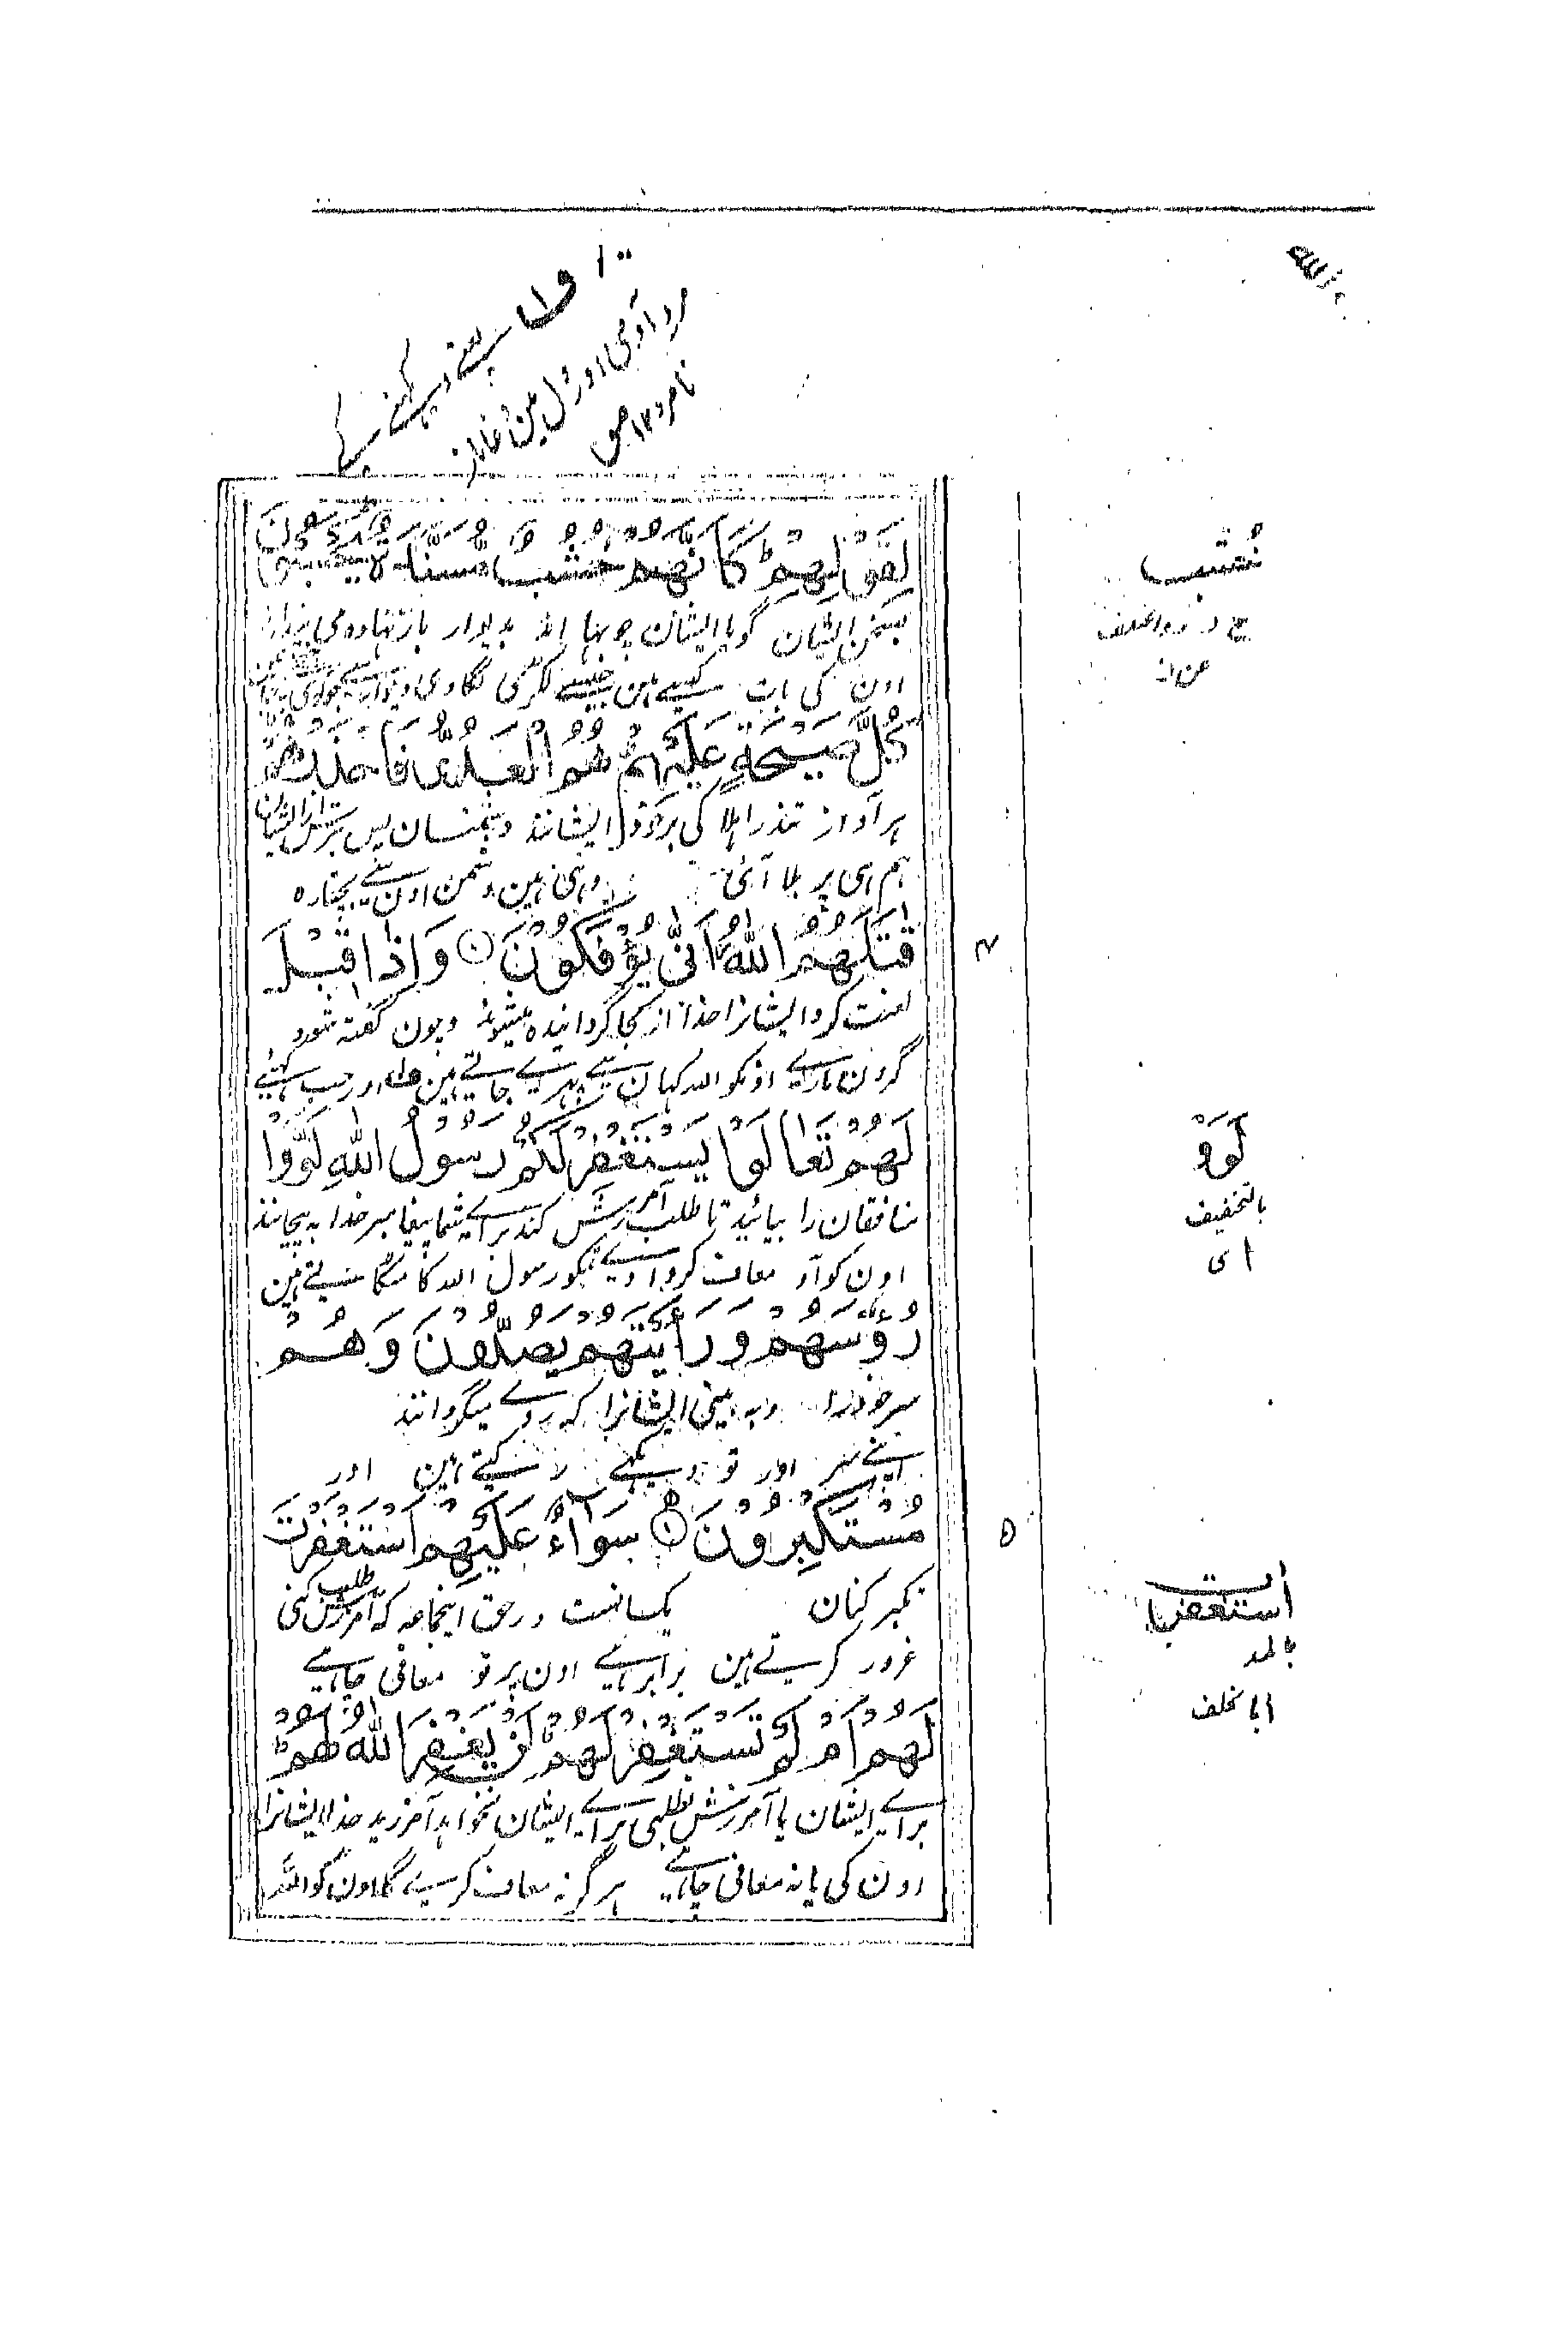 ف١ یعنے دیکھنے کے
مرد آدمی اور دل مین
نامرد ١٢
لِقَوْلِهِمْ ؕ كَاَنَّهُمْ خُشُبٌ مُّسَنَّدَةٌ ؕ يَحْسَبُوْنَ
بسخن ایشان گویا ایشان چوبها اند بدیوار باز نهاده می پندارند
اون کی بات کیسے ہین جیسے لکڑی لگا دی دیوار سے جو کوئی
كُلَّ صَيْحَةٍ عَلَيْهِمْ ؕ هُمُ الْعَدُوُّ فَاحْذَرْهُمْ
ہر آواز تند را ہلاکی بر خود ایشانند دشمنان پس بترس از ایشان
ہم ہی پر بلا آئی وہی ہین دشمن اون سے بچتا رہ
قٰتَلَهُمُ اللّٰهُ اَنّٰى يُؤْفَكُوْنَ وَاِذَا قِيْلَ
۴
لعنت کرد ایشانرا خدا از کجا گردانیده میشوند و چون گفته شود
گردن مارے اونکو اللہ کہان سے پھرے جاتے ہین ف١ اور جب کہئے
لَهُمْ تَعَالَوْا يَسْتَغْفِرْ لَكُمْ رَسُوْلُ اللّٰهِ لَوَّوْا
منافقان را بیائید تا طلب آمرزش کند برائے شما پیغامبر خدا به پیچانند
اون کو آؤ معاف کروا دے تمکو رسول اللہ کا مٹکاتے ہین
رُءُوْسَهُمْ وَرَاَيْتَهُمْ يَصُدُّوْنَ وَهُمْ
سر خود را و به بینی ایشانرا که روے میگردانند
اپنے سر اور تو دیکھے رکتے ہین اور
مُّسْتَكْبِرُوْنَ سَوَآءٌ عَلَيْهِمْ اَسْتَغْفَرْتَ
۵
تکبر کنان یکسانست در حق اینجماعہ که طلب آمرزش کنی
غرور کرتے ہین برابر ہے اون پر تو معافی چاہے
لَهُمْ اَمْ لَمْ تَسْتَغْفِرْ لَهُمْ ؕ لَنْ يَّغْفِرَ اللّٰهُ لَهُمْ ؕ
برائے ایشان یا آمرزش نطلبی برائے ایشان نخواہد آمرزید خدا ایشانرا
اون کی یا نہ معافی چاہے ہرگز نہ معاف کرے گا اون کو اللہ
خُشْبٌ
لَوَوْا
بالتخفیف
ای
آستغفرت
بالمد
ابا بخلف